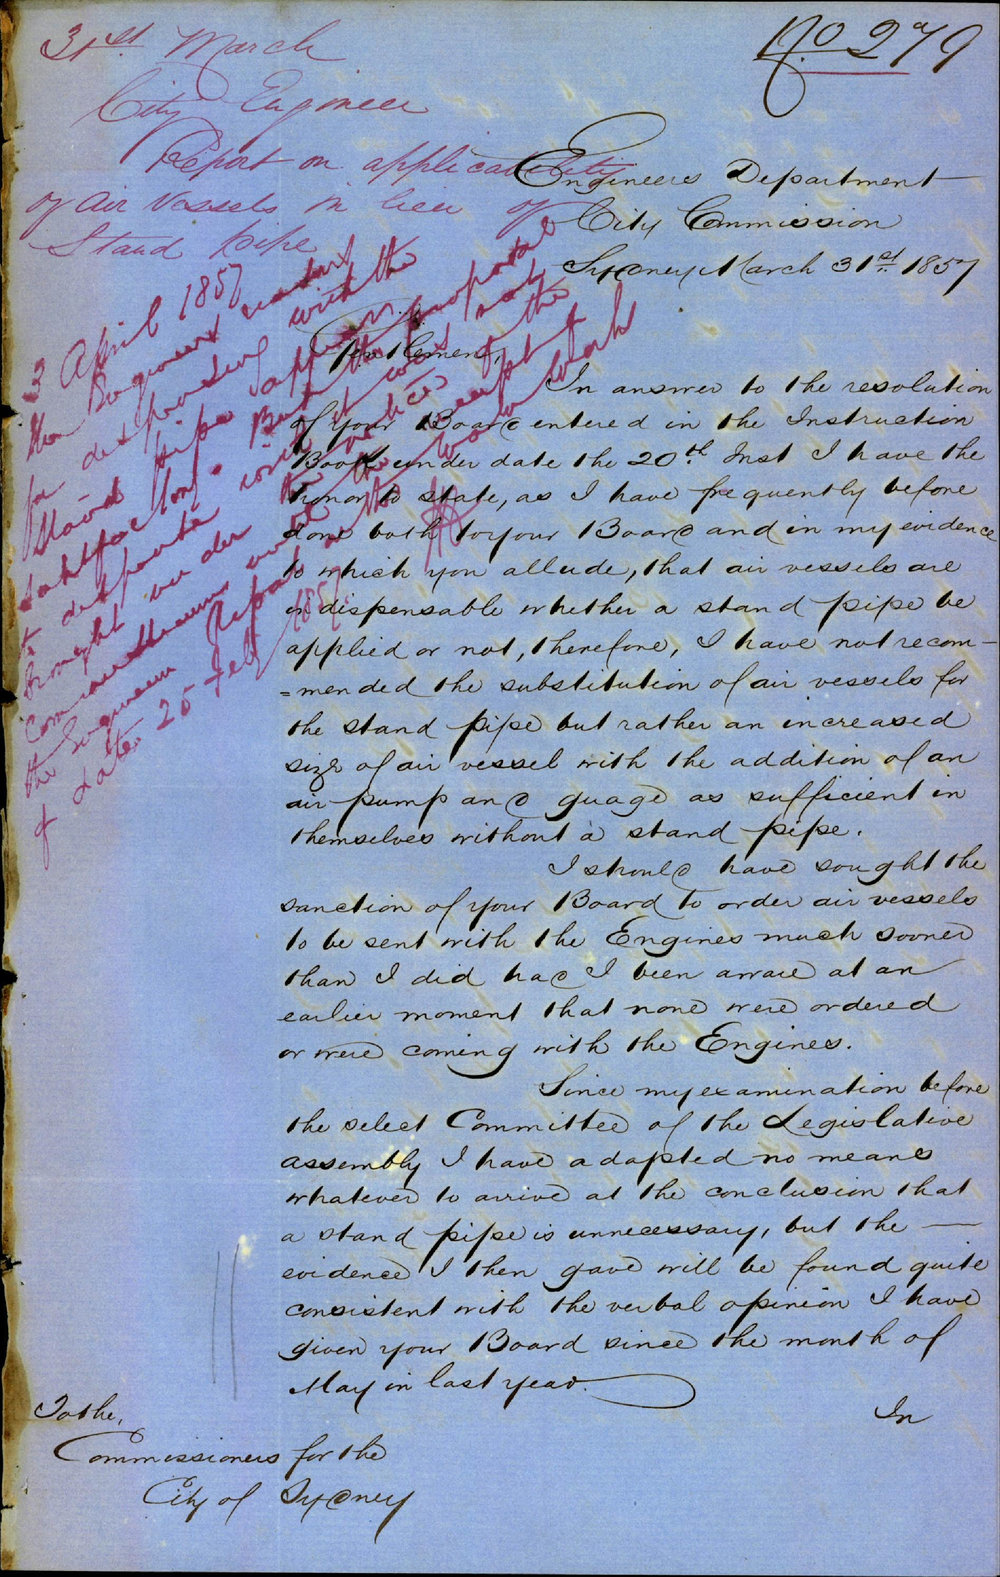 No 279
31st March
City Engineer
Report on applicability
of Air Vessels in lieu of
Stand pipe
Engineers Department
City Commission
Sydney March 31st. 1857
3 April 1857
the Engineers
for dispensing with the
Stand pipe appears
satisfactory. But the proposal
to
brought under
Commissioners
the Engineers Report
of date 25 Feby 1857.
Gentlemen,
In answer to the resolution
of your Board entered in the Instruction
Book under date the 20th. Inst I have the
honor to state, as I have frequently before
done both to your Board and in my evidence
to which you allude, that air vessels are
indispensable whether a stand pipe be
applied or not, therefore, I have not recom-
=mended the substitution of air vessels for
the stand pipe but rather an increased
size of air vessel with the addition of an
air pump and guage as sufficient in
themselves without a stand pipe.
I should have sought the
sanction of your Board to order air vessels
to be sent with the Engines much sooner
than I did had I been aware at an
earlier moment that none were ordered
or were coming with the Engines.
Since my examination before
the select Committee of the Legislative
assembly I have adapted no means
whatever to arrive at the conclusion that
a stand pipe is unnecessary, but the —
evidence I then gave will be found quite
consistent with the verbal opinion I have
given your Board since the month of
May in last year.
In
To the,
Commissioners for the
City of Sydney